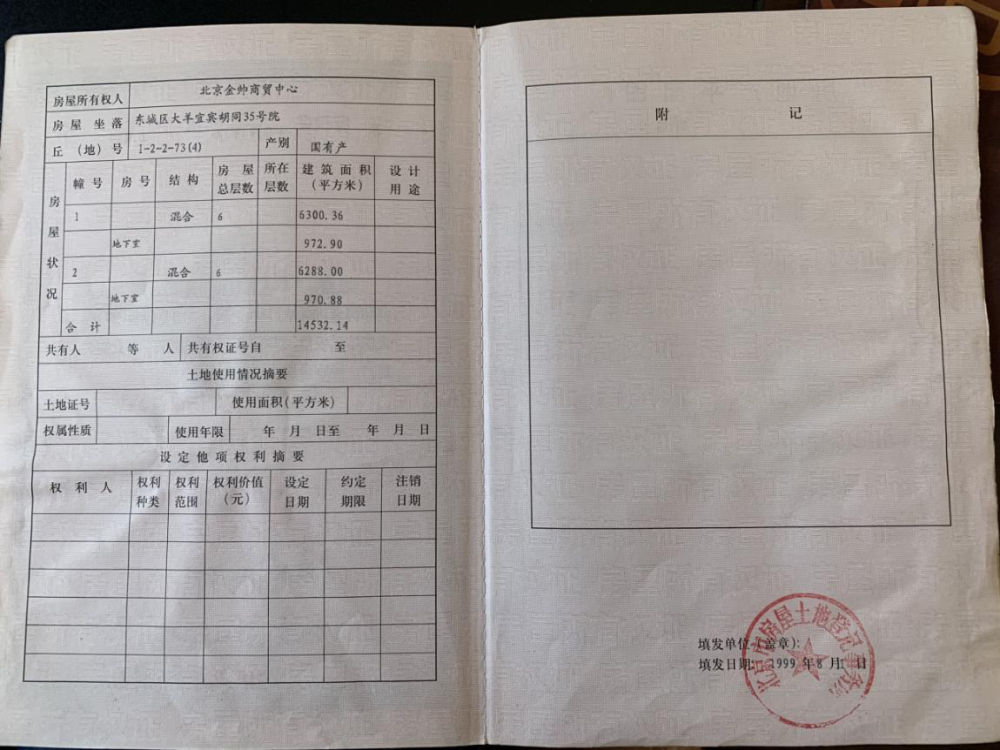 房屋所有权人 北京金帅商贸中心
房屋坐落 东城区大羊宜宾胡同35号院
丘（地）号 1-2-2-73(4) 产别 国有产
房屋状况
幢号 房号 结构 房屋总层数 所在层数 建筑面积（平方米） 设计用途
1 混合 6 6300.36
地下室 972.90
2 混合 6 6288.00
地下室 970.88
合计 14532.14
共有人 等 人 共有权证号自 至
土地使用情况摘要
土地证号 使用面积(平方米)
权属性质 使用年限 年 月 日至 年 月 日
设定他项权利摘要
权利人 权利种类 权利范围 权利价值（元） 设定日期 约定期限 注销日期
附 记
填发单位（盖章）：
填发日期：1999年8月 日
房屋土地登记事务所